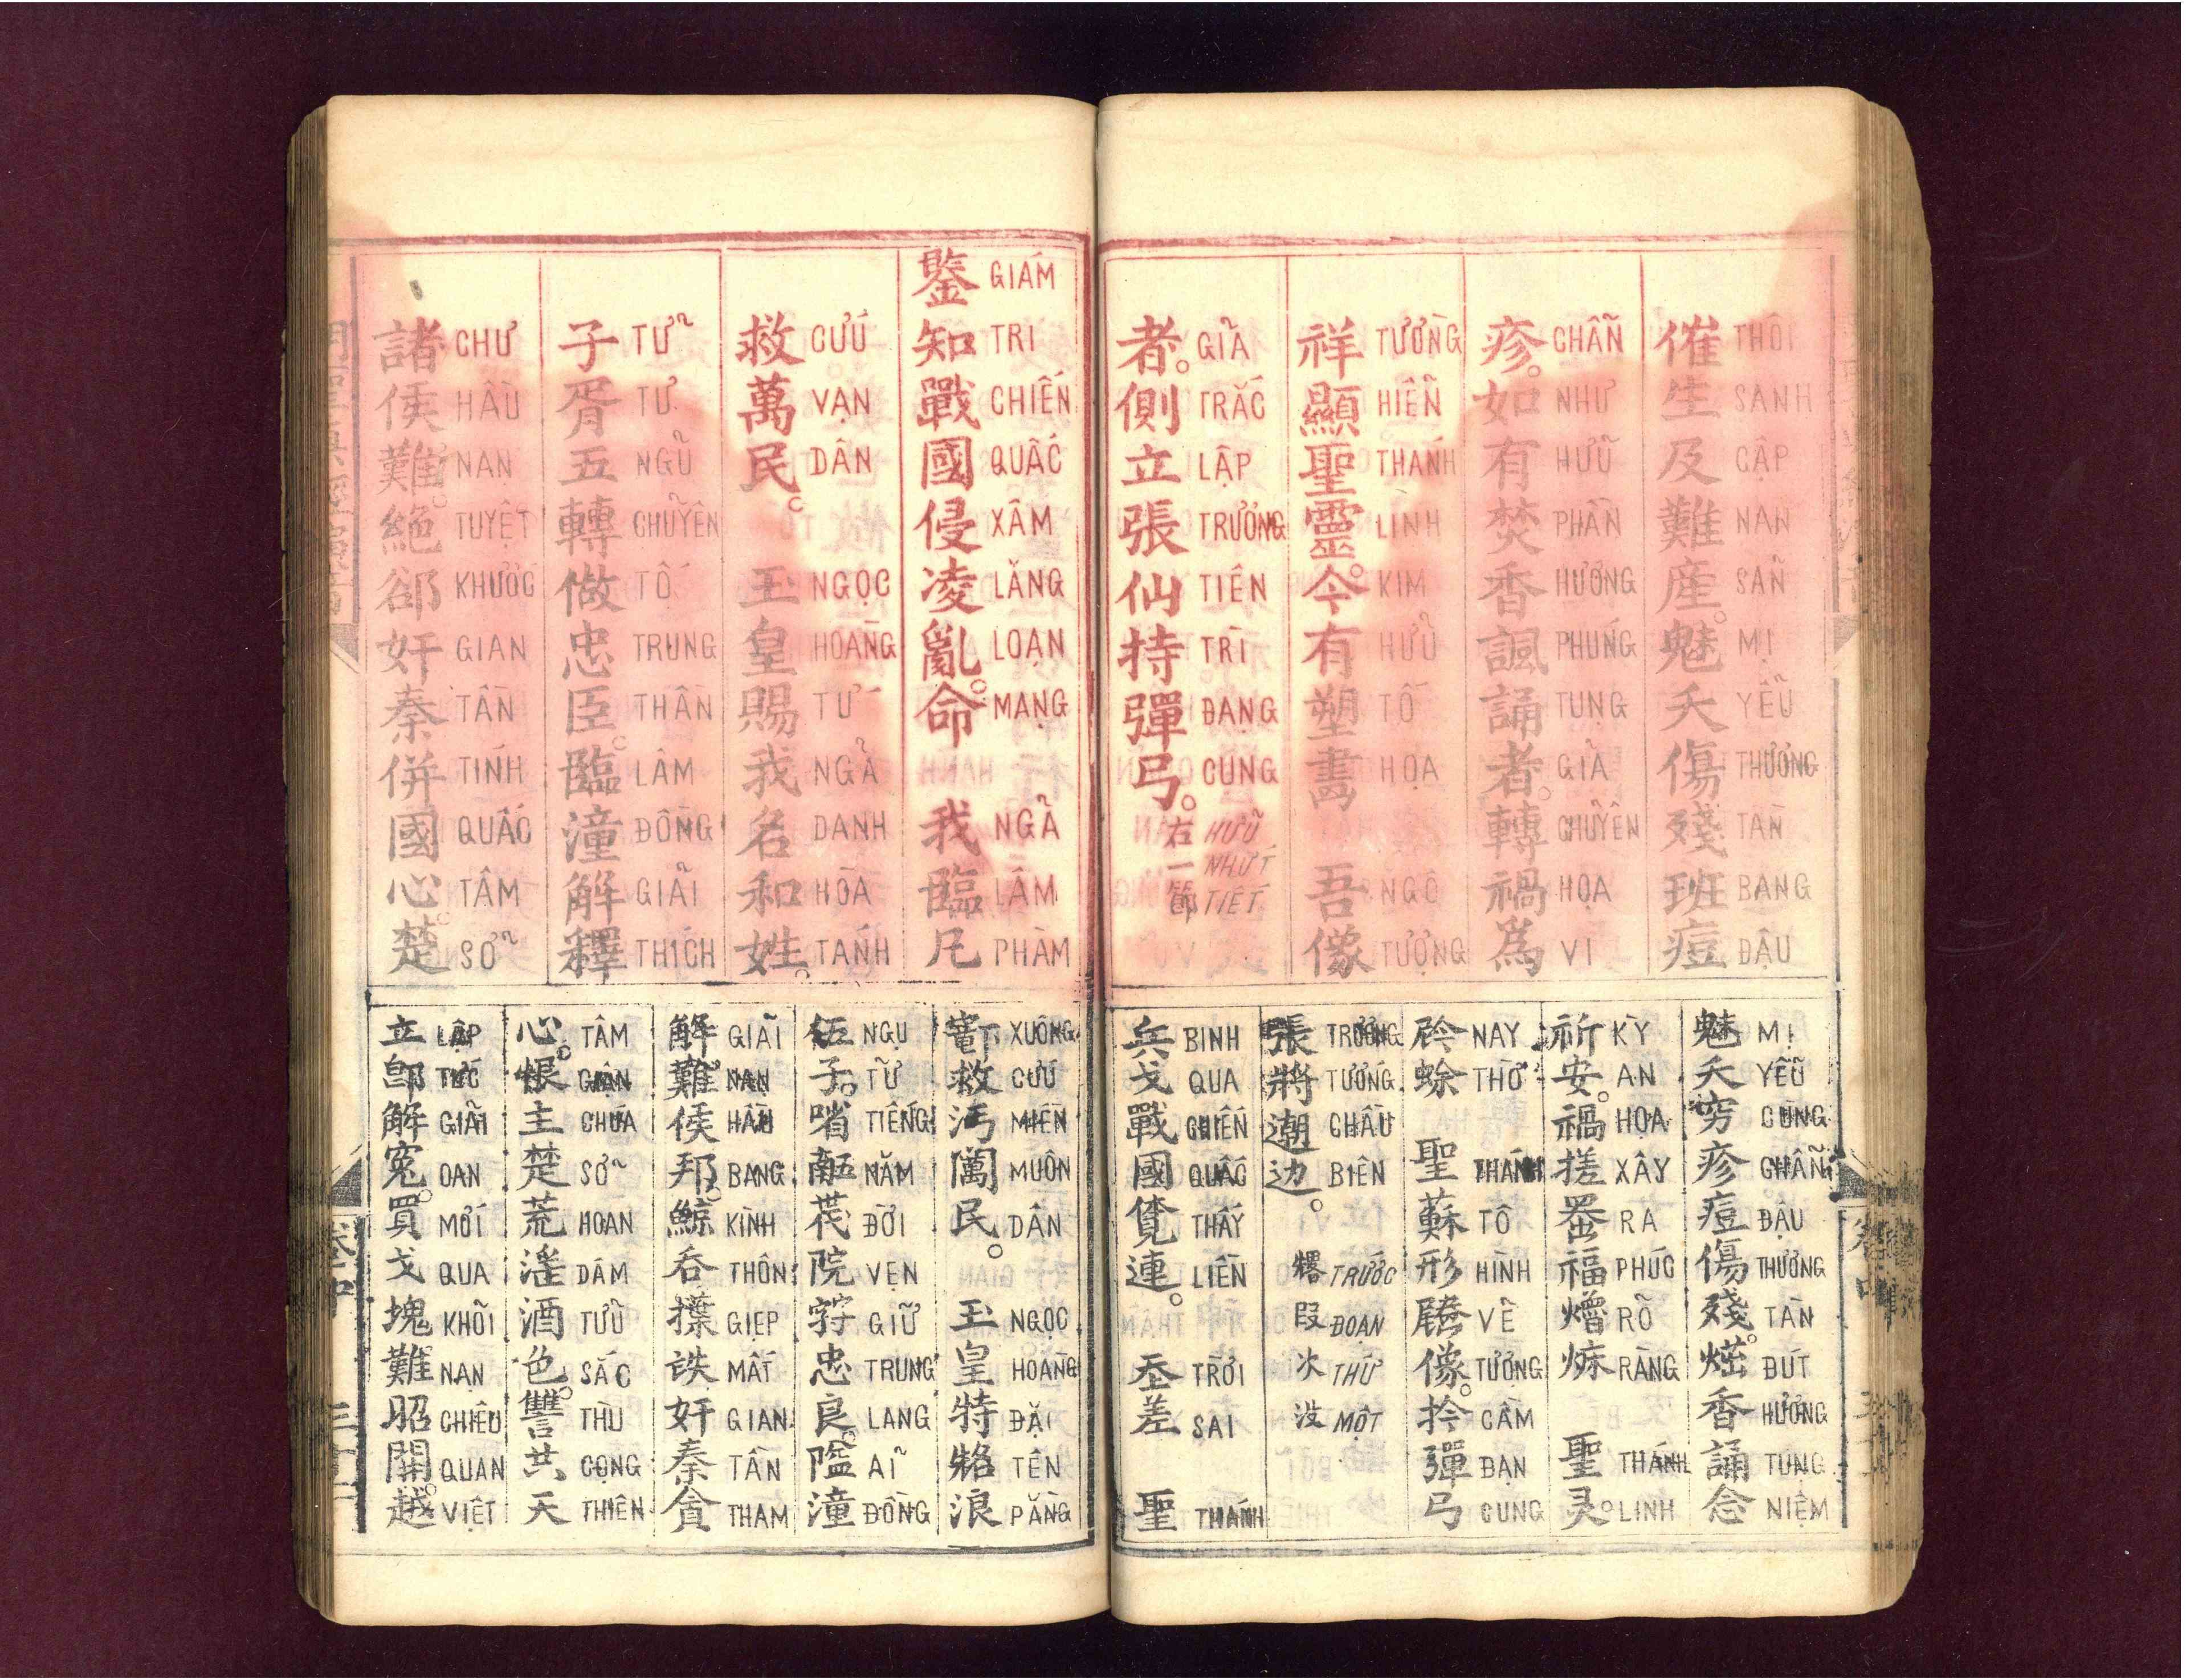 催生及難産。魅夭傷殘班痘
THÔI SANH CẬP NAN SẢN MỊ YỂU THƯƠNG TÀN BANG ĐẬU
疹。如有焚香諷誦者。轉禍爲
CHẨN NHƯ HỮU PHẦN HƯƠNG PHÚNG TỤNG GIẢ CHUYỂN HỌA VI
祥顯聖靈。今有塑畵 吾像
TƯỜNG HIỂN THÁNH LINH KIM HỮU TỐ HỌA NGÔ TƯỢNG
者。側立張仙持彈弓。右一節
GIẢ TRẮC LẬP TRƯƠNG TIÊN TRÌ ĐẠNG CUNG HỮU NHỨT TIẾT
魅夭穷疹痘傷殘。香誦念
MỊ YỂU CÙNG CHẨN ĐẬU THƯƠNG TÀN ĐÚT HƯƠNG TỤNG NIỆM
祈安。禍搓𦋦福𤏬𤇥 聖灵。
KỲ AN HỌA XÂY RA PHÚC RÕ RÀNG THÁNH LINH
𫢩蜍 聖蘇形𧗱像。扲彈弓
NAY THỜ THÁNH TÔ HÌNH VỀ TƯỢNG CẦM ĐẠN CUNG
張將潮边。𠓀段次没
TRƯƠNG TƯỚNG CHẦU BIÊN TRƯỚC ĐOẠN THỨ MỘT
兵戈戰國覽連。𡗶差 聖
BINH QUA CHIẾN QUẤC THẤY LIỀN TRỜI SAI THÁNH
鑒知戰國侵凌亂。命 我臨凡
GIÁM TRI CHIẾN QUẤC XÂM LĂNG LOẠN MẠNG NGÃ LÂM PHÀM
救萬民。 玉皇賜我名和姓。
CỨU VẠN DÂN NGỌC HOÀNG TỨ NGÃ DANH HÒA TÁNH
子胥五轉做忠臣。臨潼解釋
TỬ TƯ NGŨ CHUYỂN TỐ TRUNG THẦN LÂM ĐỒNG GIẢI THÍCH
諸侯難。絶郤奸秦併國心。楚
CHƯ HẦU NẠN TUYỆT KHƯỚC GIAN TẦN TÍNH QUẤC TÂM SỞ
救沔𨷈民。 玉皇特𠸛浪
XUỐNG CỨU MIỀN MUÔN DÂN NGỌC HOÀNG ĐẶT TÊN RẰNG
伍子。㗂𠄼𠁀院𡨹忠良。隘潼
NGŨ TỬ TIẾNG NĂM ĐỜI VẸN GIỮ TRUNG LANG ẢI ĐỒNG
解難。侯邦。鯨吞擛𠅒奸秦貪
GIẢI NẠN HẦU BANG KÌNH THÔN GIẸP MẤT GIAN TẦN THAM
心。恨主楚荒滛酒色。讐共天
TÂM GIẬN CHÚA SỞ HOAN DÂM TỬU SẮC THÙ CỘNG THIÊN
立卽解寃。買戈塊難昭關。越
LẬP TỨC GIẢI OAN MỚI QUA KHỎI NẠN CHIÊU QUAN VIỆT